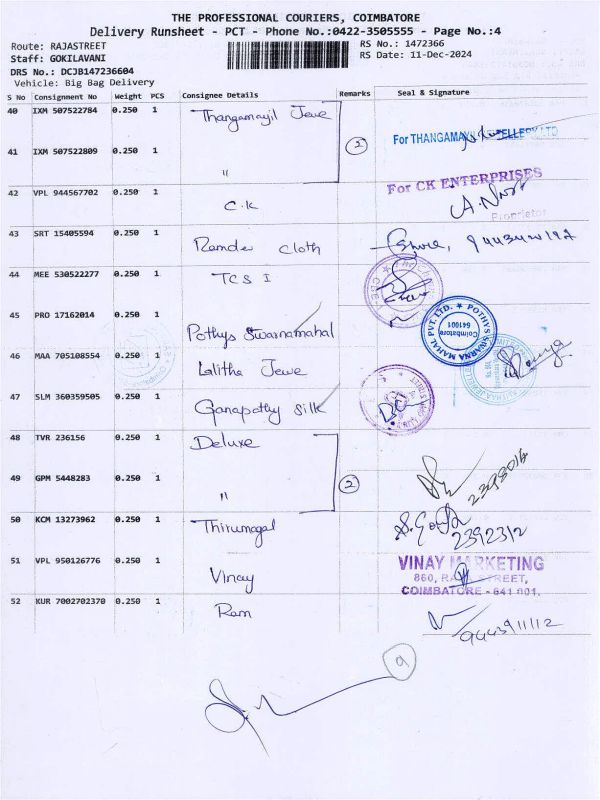 THE PROFESSIONAL COURIERS, COIMBATORE
Delivery Runsheet - PCT - Phone No.:0422-3505555 - Page No.:4
Route: RAJASTREET
RS No.: 1472366
Staff: GOKILAVANI
RS Date: 11-Dec-2024
DRS No.: DCJB147236604
Vehicle: Big Bag Delivery
S No Consignment No Weight PCS Consignee Details Remarks Seal & Signature
40 IXM 507522784 0.250 1 Thangamayil Jewe
41 IXM 507522809 0.250 1 " 2 For THANGAMAYIL JEWELLERY LTD
42 VPL 944567702 0.250 1 C.K For CK ENTERPRISES
Proprietor
43 SRT 15405594 0.250 1 Ramdev cloth
44 MEE 530522277 0.250 1 TCS I
45 PRO 17162014 0.250 1 Pothys Swarnamahal POTHYS SWARNA MAHAL PVT. LTD. Coimbatore 641001
46 MAA 705108554 0.250 1 Lalitha Jewe
47 SLM 360359505 0.250 1 Ganapathy Silk
48 TVR 236156 0.250 1 Deluxe
49 GPM 5448283 0.250 1 " 2
50 KCM 13273962 0.250 1 Thirumagal 2392312
51 VPL 950126776 0.250 1 Vinay VINAY MARKETING
860, RAJA STREET,
COIMBATORE - 641 001.
52 KUR 7002702370 0.250 1 Ram 9443911112
9